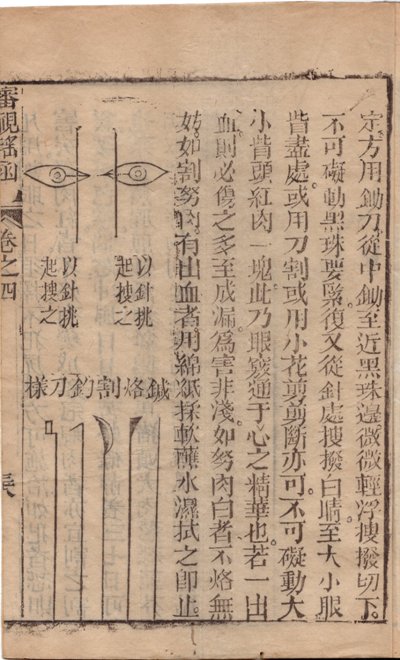 定方用鋤刀從中鋤至近黑珠邊微微輕浮搜撥切下
不可礙動黑珠要緊復又從針處搜撥白睛至大小眼
眥盡處或用刀割或用小花剪剪斷亦可不可礙動大
小眥頭紅肉一塊此乃眼竅通于心之精華也若一出
血則必傷之多至成漏為害非淺如努肉白者不烙無
妨如割努肉有出血者用綿紙揉軟蘸水濕拭之即止
以針挑
起搜之
以針挑
起搜之
鍼烙割釣刀樣
審視瑤函
卷之四